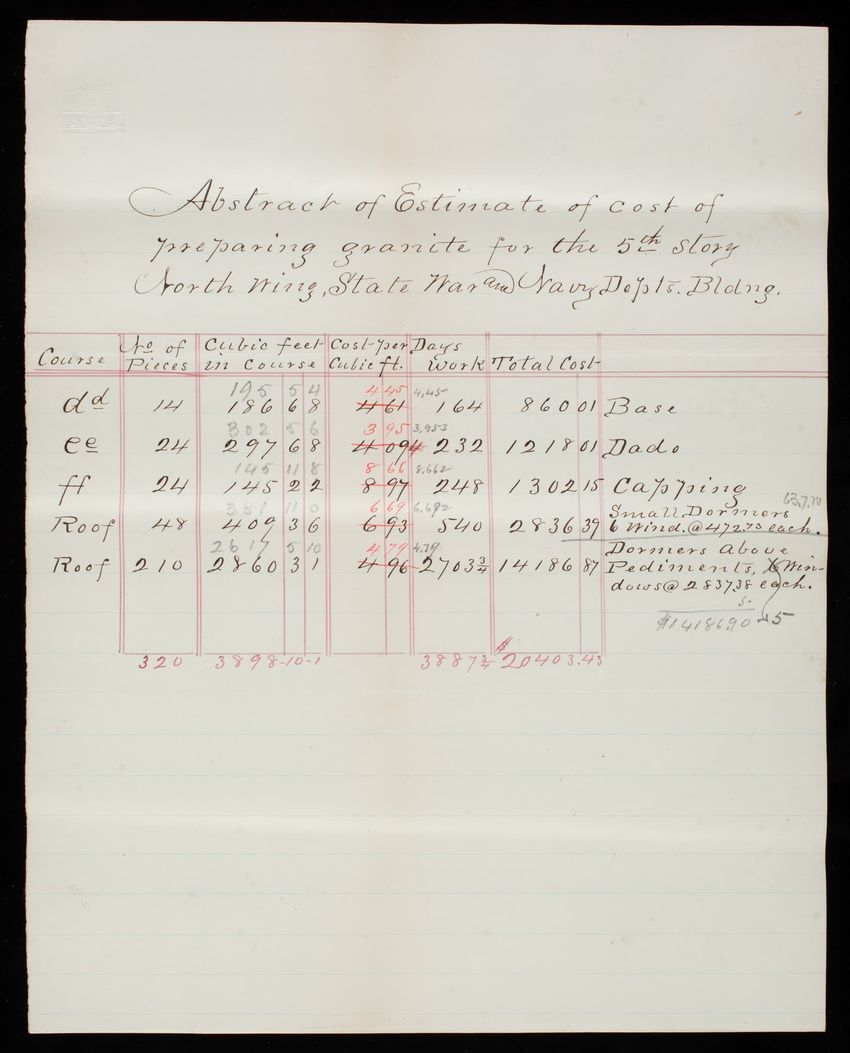 Abstract of Estimate of cost of
preparing granite for the 5th Story
North Wing, State War and Navy Depts. Bldng.
Course No of Pieces Cubic feet in Course Cost per Cubic ft. Days work Total Cost
195 5 4 4 45 4,45
dd 14 186 6 8 4 61 164 860 01 Base
302 5 6 3 95 3,953
ee 24 297 6 8 4 09 232 1218 01 Dado
145 11 8 8 66 8,662
ff 24 145 2 2 8 97 248 1302 15 Capping
381 11 0 6 69 6.692 Small Dormers
Roof 48 409 3 6 6 93 540 2836 39 6 Wind. @ 472.73 each.
2617 5 10 4 79 4.79 Dormers above
Roof 210 2860 3 1 4 96 2703 3/4 14186 87 Pediments, Win-
dows @ 2837.38 each.
5-
$14186.90 5
320 3898-10-1 3887 3/4 $20403.43